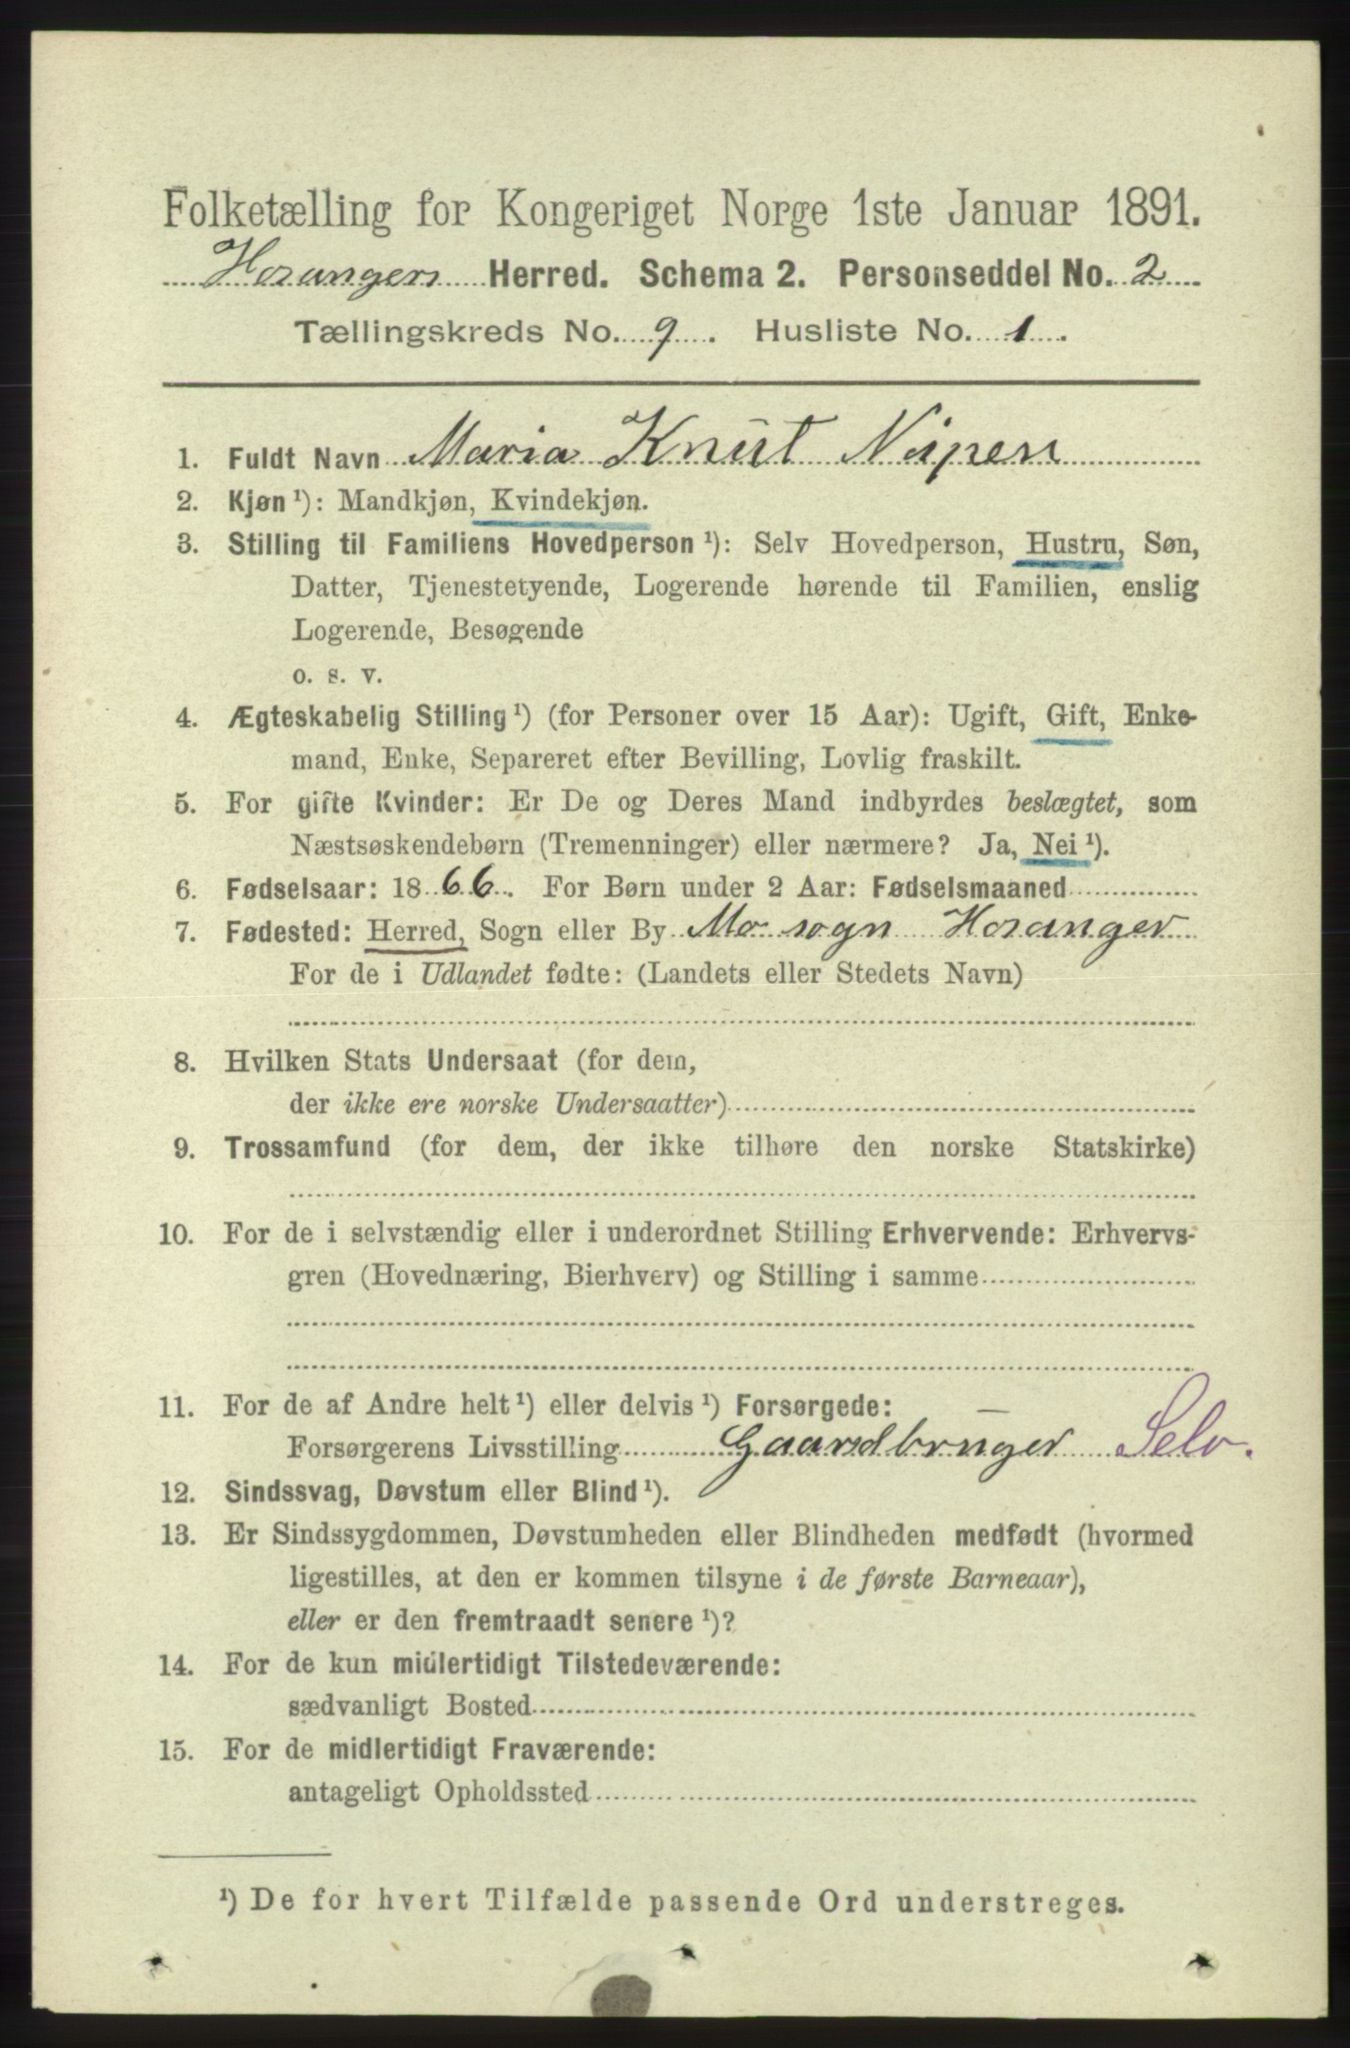 Folketælling for Kongeriget Norge 1ste Januar 1891.
Hosangers Herred. Schema 2. Personseddel No. 2
Tællingskreds No. 9. Husliste No. 1.
1. Fuldt Navn Maria Knut Nipen
2. Kjøn ¹): Mandkjøn, Kvindekjøn.
3. Stilling til Familiens Hovedperson ¹): Selv Hovedperson, Hustru, Søn,
Datter, Tjenestetyende, Logerende hørende til Familien, enslig
Logerende, Besøgende
o. s. v.
4. Ægteskabelig Stilling ¹) (for Personer over 15 Aar): Ugift, Gift, Enke-
mand, Enke, Separeret efter Bevilling, Lovlig fraskilt.
5. For gifte Kvinder: Er De og Deres Mand indbyrdes beslægtet, som
Næstsøskendebørn (Tremenninger) eller nærmere? Ja, Nei ¹).
6. Fødselsaar: 1866. For Børn under 2 Aar: Fødselsmaaned
7. Fødested: Herred, Sogn eller By Mo sogn Hosanger
For de i Udlandet fødte: (Landets eller Stedets Navn)
8. Hvilken Stats Undersaat (for dem,
der ikke ere norske Undersaatter)
9. Trossamfund (for dem, der ikke tilhøre den norske Statskirke)
10. For de i selvstændig eller i underordnet Stilling Erhvervende: Erhvervs-
gren (Hovednæring, Bierhverv) og Stilling i samme
11. For de af Andre helt ¹) eller delvis ¹) Forsørgede:
Forsørgerens Livsstilling Gaardbruger Selv.
12. Sindssvag, Døvstum eller Blind ¹).
13. Er Sindssygdommen, Døvstumheden eller Blindheden medfødt (hvormed
ligestilles, at den er kommen tilsyne i de første Barneaar),
eller er den fremtraadt senere ¹)?
14. For de kun midlertidigt Tilstedeværende:
sædvanligt Bosted
15. For de midlertidigt Fraværende:
antageligt Opholdssted
¹) De for hvert Tilfælde passende Ord understreges.